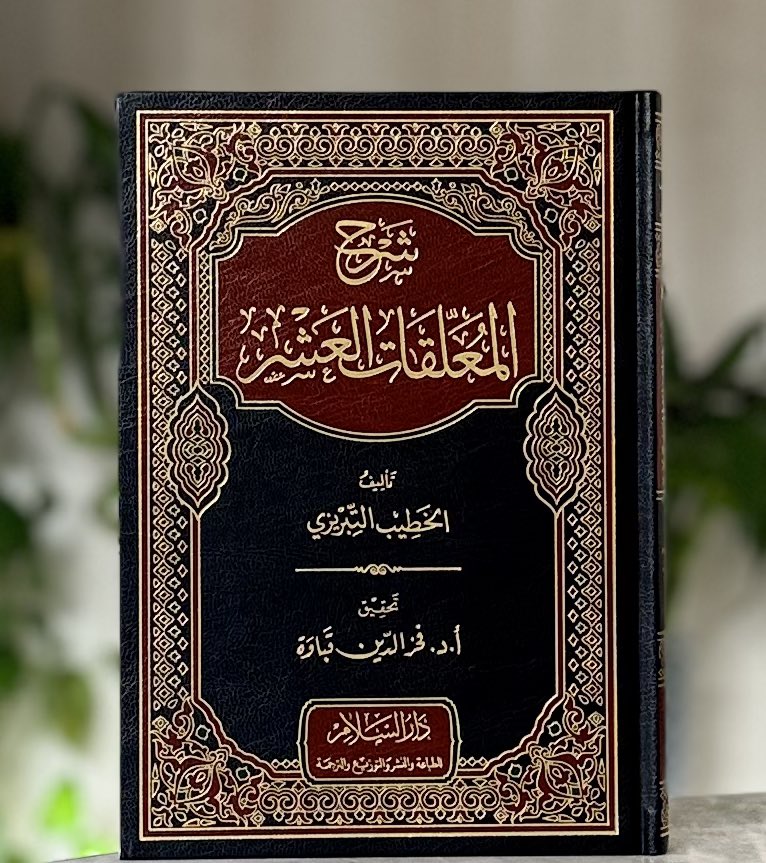 شرح
المُعَلَّقَاتِ العَشْرِ
تَأليفُ
الخَطِيْب التِّبْرِيْزِي
تَحقِيْق
أ.د. فخر الدّين قَبَاوَة
دَارُ السَّلَام
للطباعة والنشر والتوزيع والترجمة